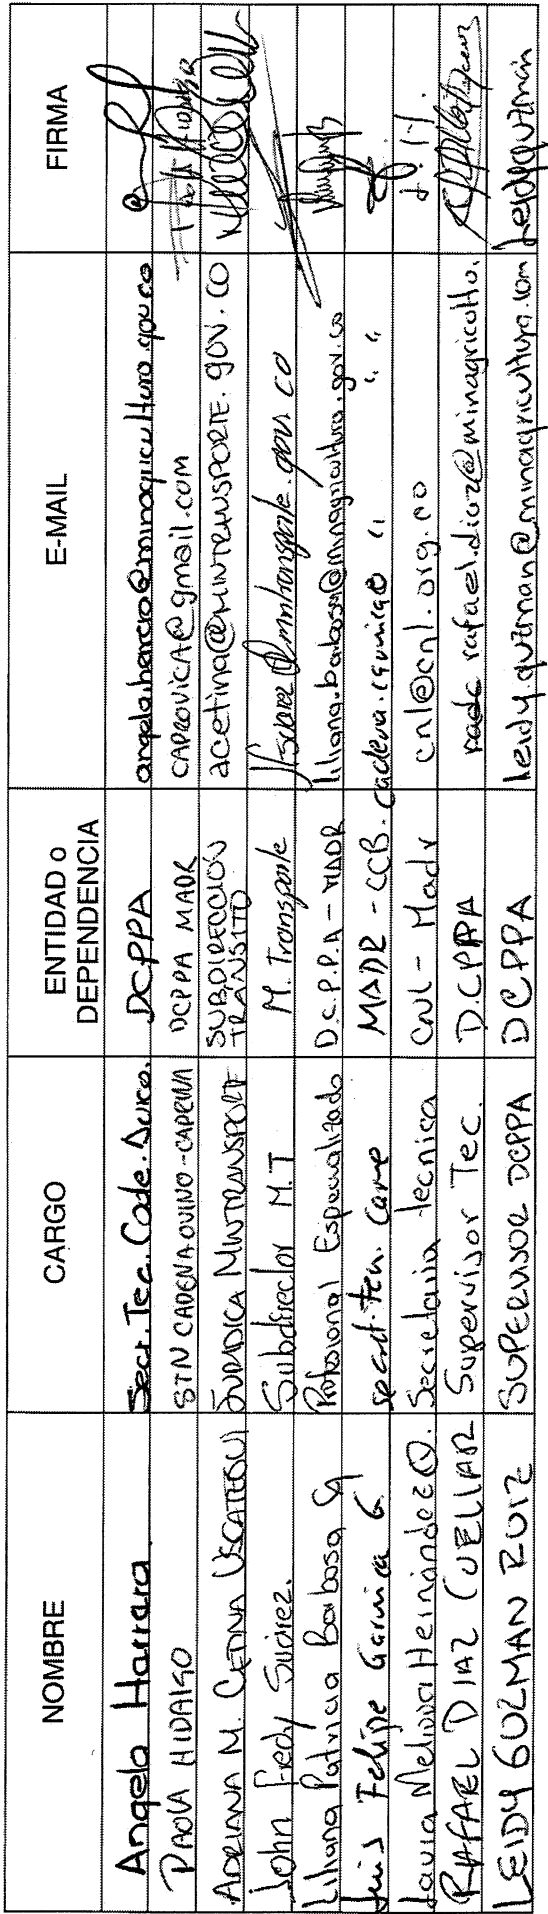 NOMBRE CARGO ENTIDAD o DEPENDENCIA E-MAIL FIRMA
Angela Herrera Secr. Tec. Cade. DCPPA angela.herrera@minagricultura.gov.co
PAOLA HIDALGO STN CADENA OVINO-CAPRINA DCPPA MADR CAPROVICA@gmail.com
ADRIANA M. CETINA USCATEGUI JURIDICA MINTRANSPORTE SUBDIRECCIÓN TRANSITO acetina@MINTRANSPORTE.gov.co
John Fredy Suárez. Subdirector M.T M. Transporte Jfsuarez@mintransporte.gov.co
Liliana Patricia Barbosa G Profesional Especializado D.C.P.P.A - MADR liliana.barbosa@minagricultura.gov.co
Luis Felipe Garnica G Secret. Tecn. Carne MADR - CCB. cadena.carnica@ " " "
Laura Melissa Hernández Q. Secretaria tecnica CNL - Madr cnl@cnl.org.co
RAFAEL DIAZ CUELLAR Supervisor Tec. D.CPPA rafael.diaz@minagricultu.
LEIDY GUZMAN RUIZ SUPERVISOR DCPPA DCPPA leidy.guzman@minagricultura.com Leidyguzmán